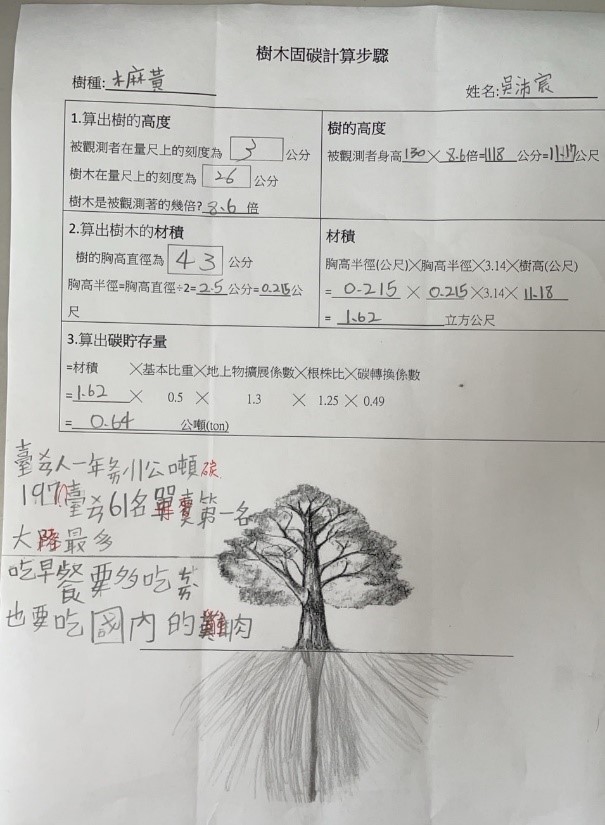 樹木固碳計算步驟
樹種:木麻黃
姓名:吳沛宸
1.算出樹的高度
被觀測者在量尺上的刻度為 3 公分
樹木在量尺上的刻度為 26 公分
樹木是被觀測著的幾倍?8.6 倍
樹的高度
被觀測者身高130×8.6倍=1118公分=11.17公尺
2.算出樹木的材積
樹的胸高直徑為 43 公分
胸高半徑=胸高直徑÷2=2.5公分=0.215公
尺
材積
胸高半徑(公尺)×胸高半徑×3.14×樹高(公尺)
= 0.215 × 0.215×3.14×11.18
= 1.62 立方公尺
3.算出碳貯存量
=材積 ×基本比重×地上物擴展係數×根株比×碳轉換係數
=1.62 × 0.5 × 1.3 × 1.25 × 0.49
= 0.64 公噸(ton)
臺ㄨㄢ人一年ㄘㄞ11公噸碳
197 臺ㄨㄢ61名 單賣第一名
大陸最多
吃早餐要多吃ㄘㄞ
也要吃國內的雞肉